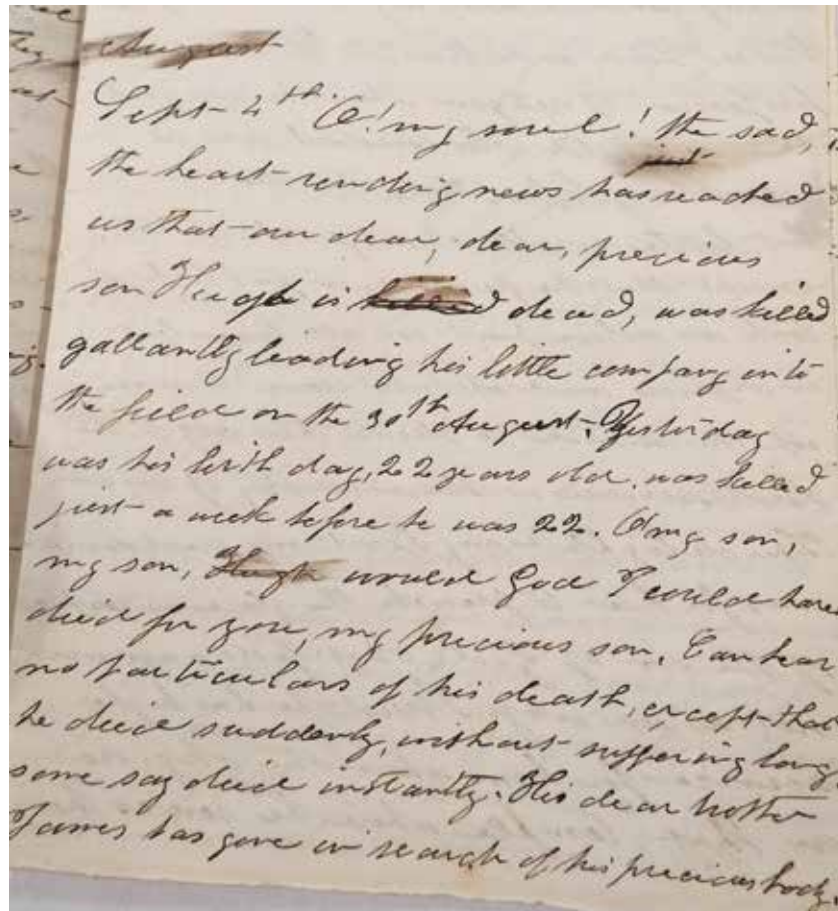 August
Sept 4th. O! my soul! the sad,
just
the heart-rending news has reached
us that our dear, dear, precious
son Hugh is killed dead, was killed
gallantly leading his little company into
the field on the 30th August. Yesterday
was his birth day, 22 years old. was killed
just a week before he was 22. O my son,
my son, Hugh would God I could have
died for you, my precious son. Can hear
no particulars of his death, except that
he died suddenly, without suffering long.
some say died instantly. His dear brother
James has gone in search of his precious body.